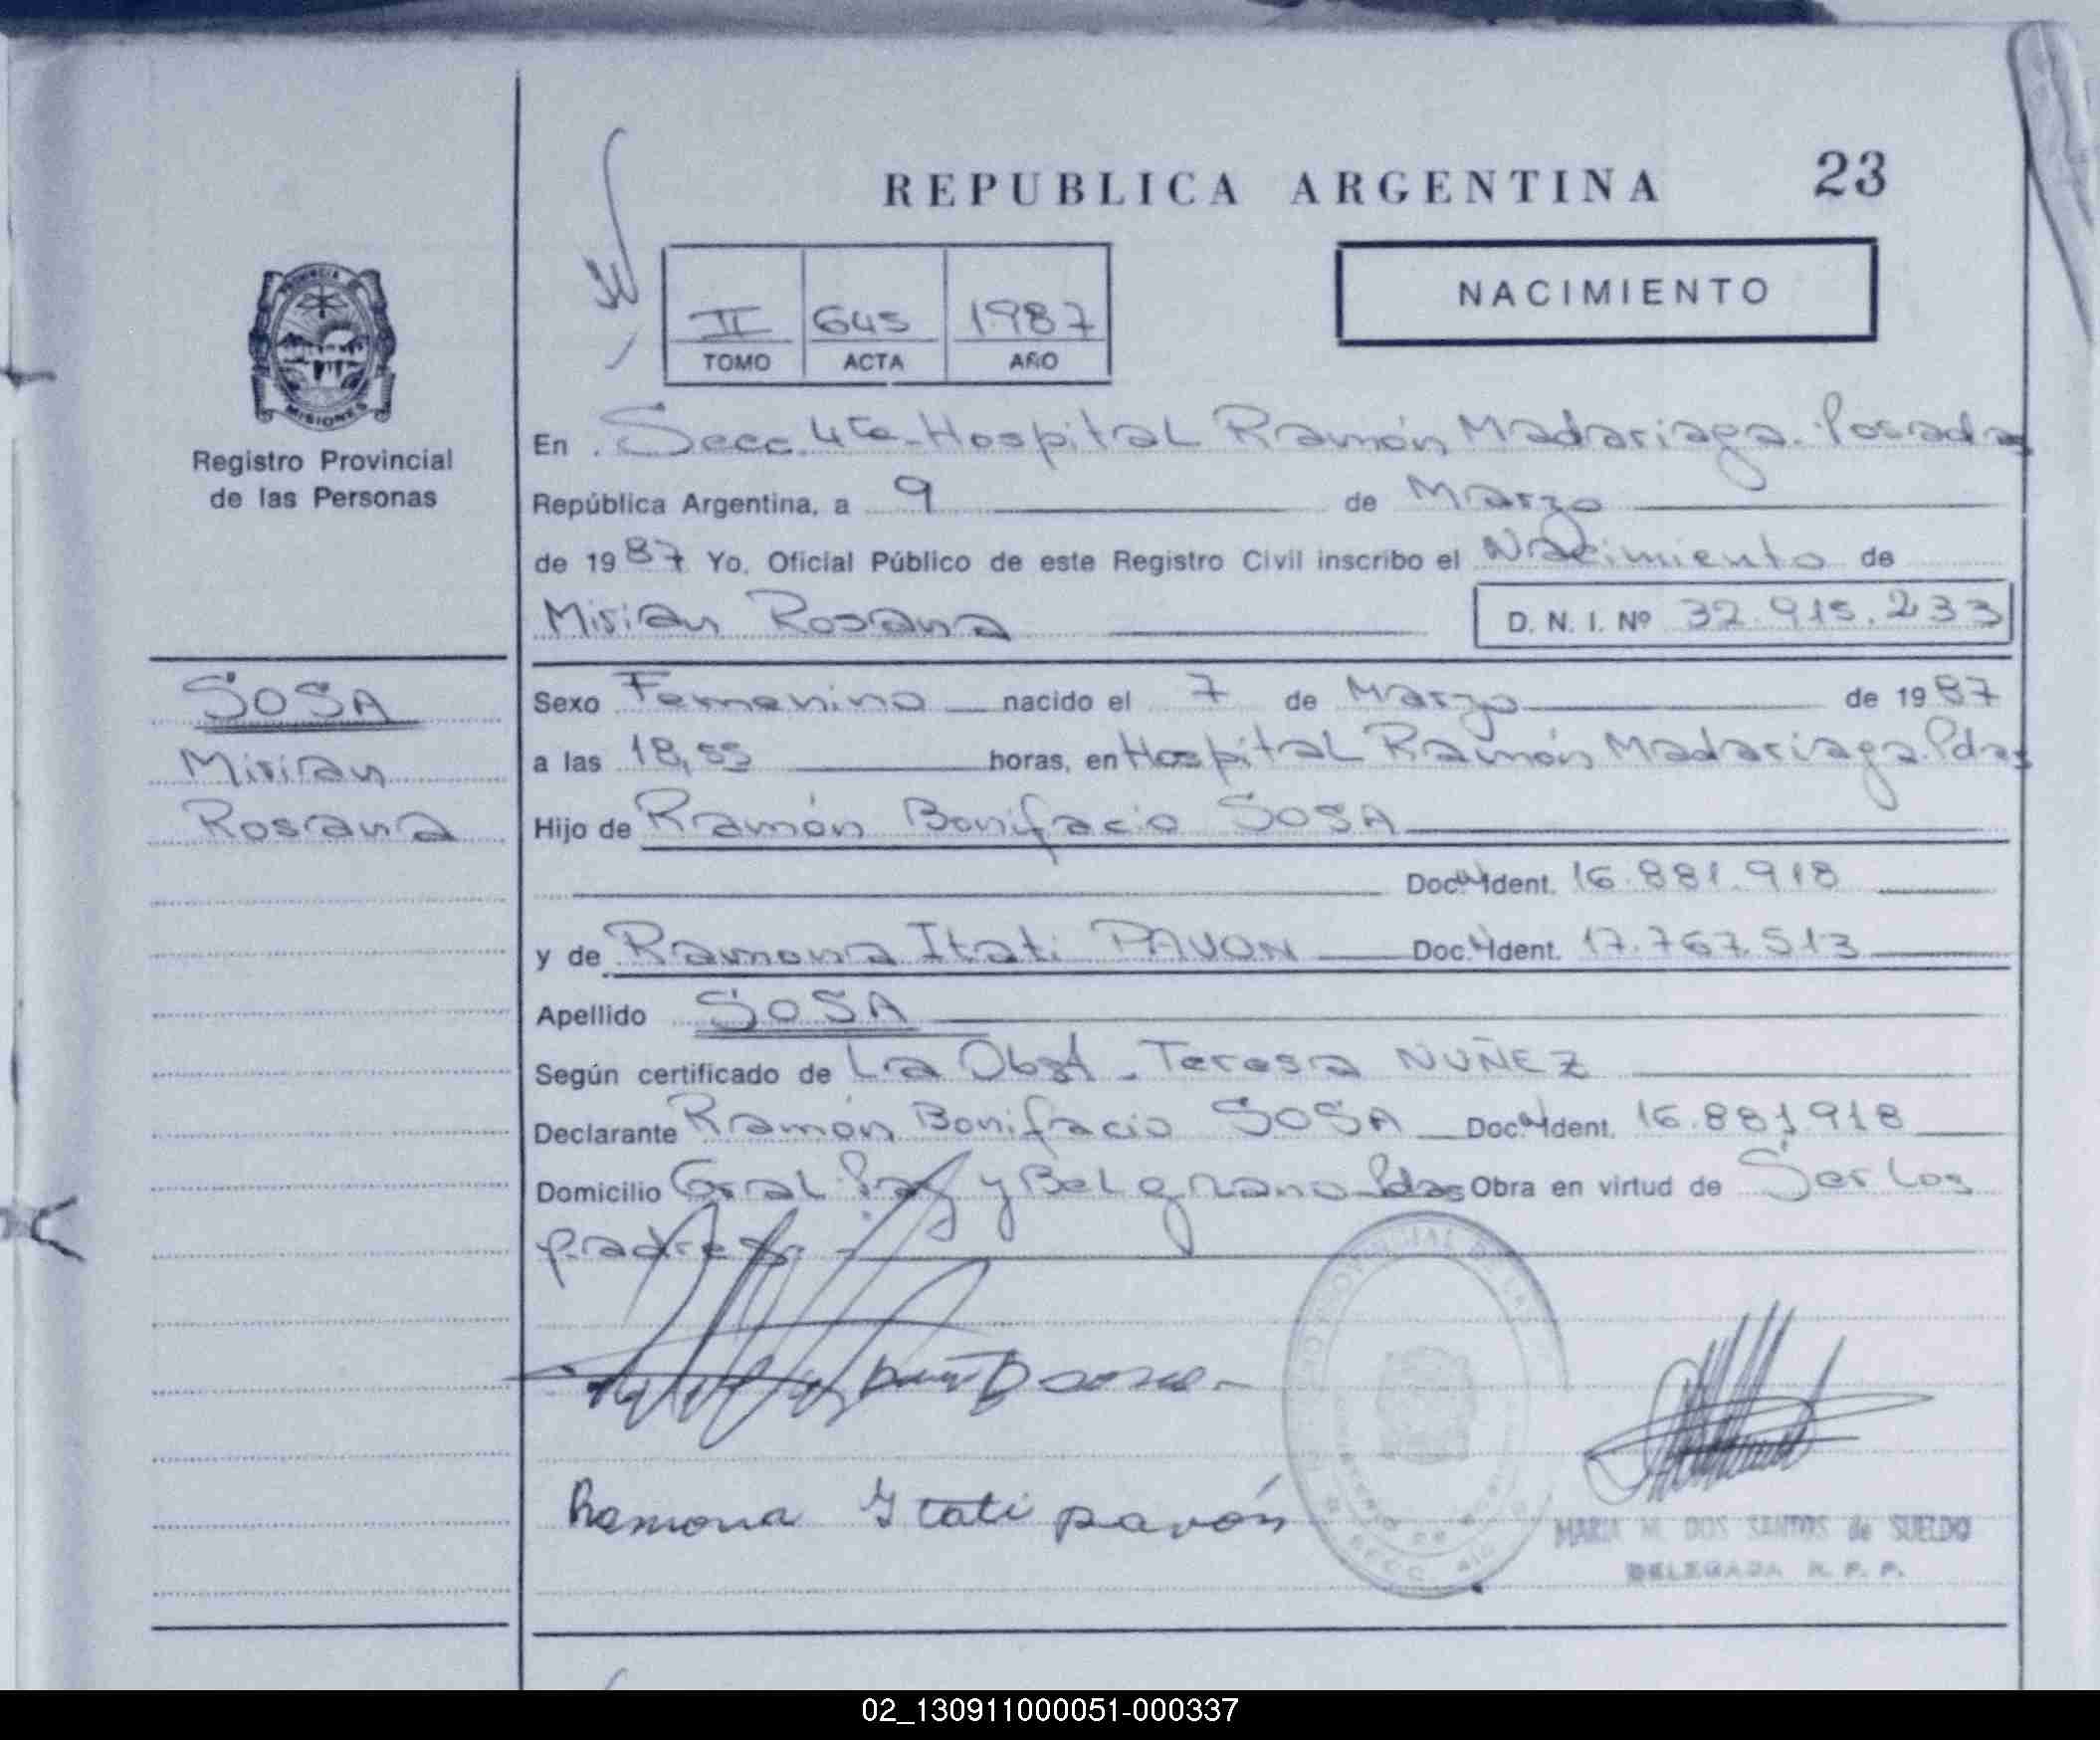 REPUBLICA ARGENTINA 23
II 645 1987
TOMO ACTA AÑO
NACIMIENTO
PROVINCIA
MISIONES
Registro Provincial
de las Personas
SOSA
Mirian
Rosana
En Secc. 4ta- Hospital Ramón Madariaga. Posadas
República Argentina, a 9 de Marzo
de 1987 Yo, Oficial Público de este Registro Civil inscribo el Nacimiento de
Mirian Rosana D. N. I. Nº 32.915.233
Sexo Femenino nacido el 7 de Marzo de 1987
a las 18,55 horas, en Hospital Ramón Madariaga. Pdas
Hijo de Ramón Bonifacio SOSA
Doc. Ident. 16.881.918
y de Ramona Itati PAVON Doc. Ident. 17.767.513
Apellido SOSA
Según certificado de La Obst. Teresa NUÑEZ
Declarante Ramón Bonifacio SOSA Doc. Ident. 16.881.918
Domicilio Gral Paz y Belgrano Pdas Obra en virtud de Ser los
padres.-
Ramona Itati pavón
MARIA M. DOS SANTOS de SUELDO
DELEGADA R. P. P.
02_130911000051-000337